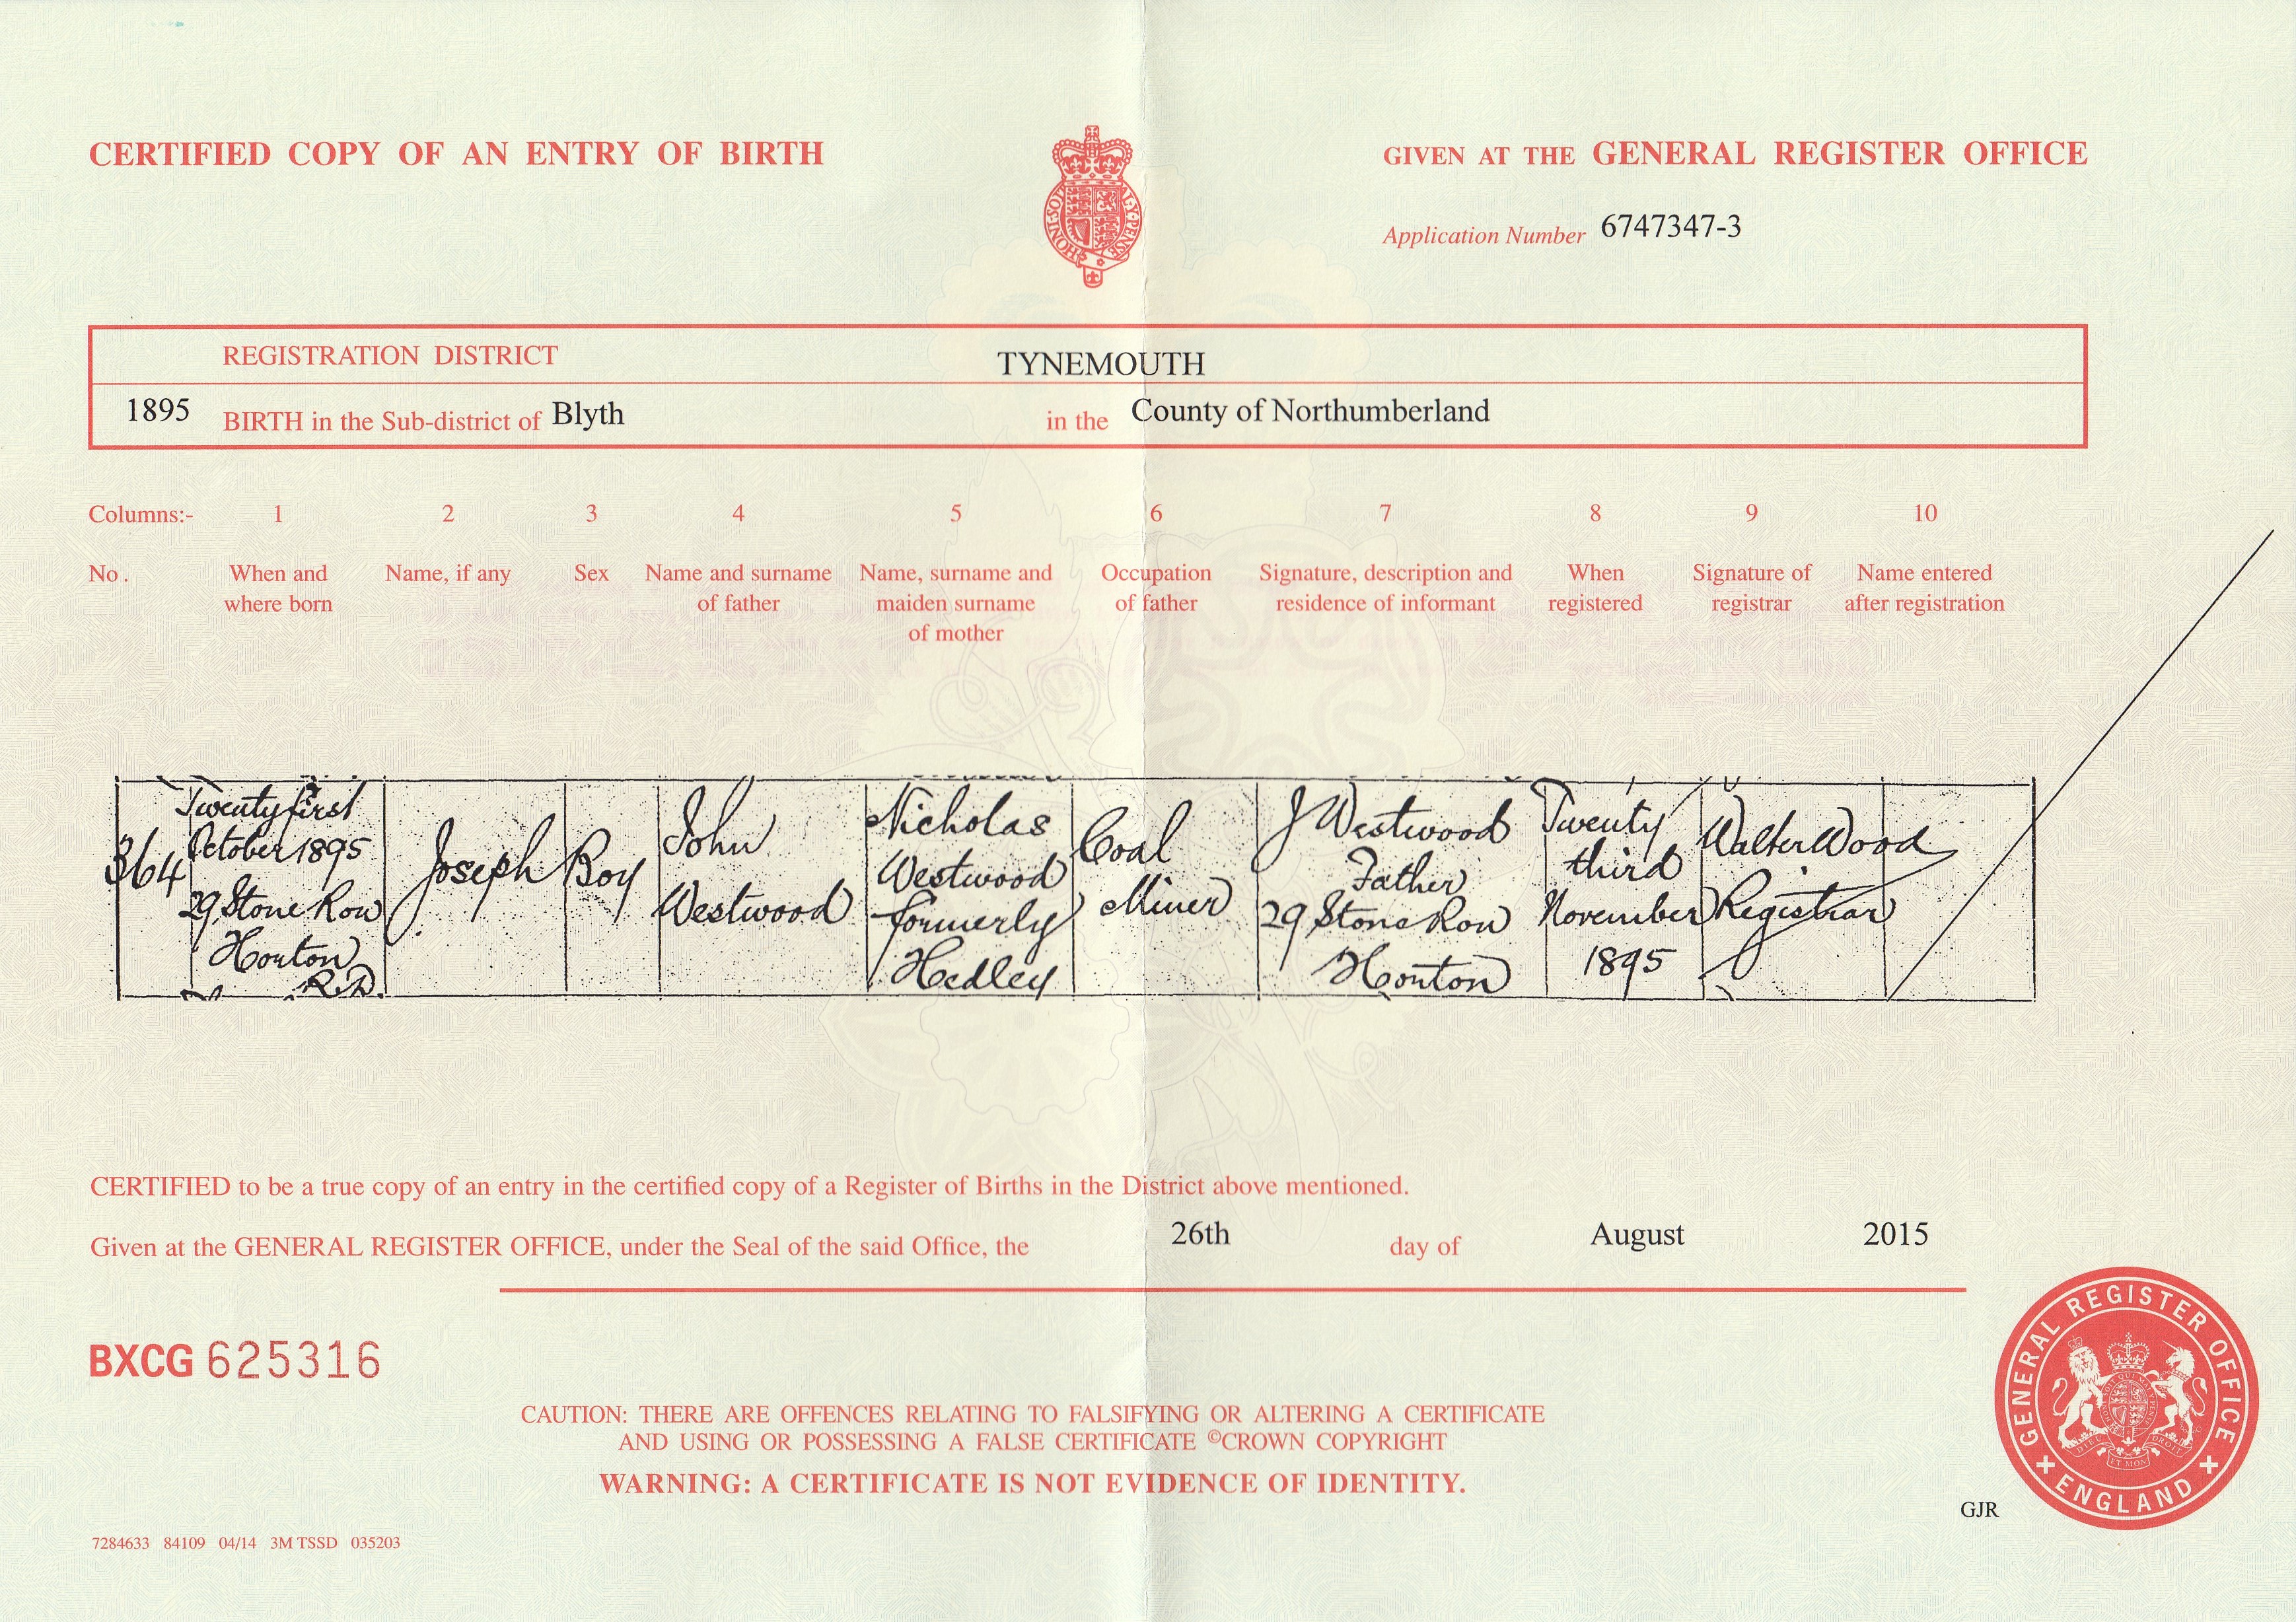 CERTIFIED COPY OF AN ENTRY OF BIRTH
GIVEN AT THE GENERAL REGISTER OFFICE
HONI·SOIT
MAL·Y·PENSE
Application Number 6747347-3
REGISTRATION DISTRICT TYNEMOUTH
1895 BIRTH in the Sub-district of Blyth in the County of Northumberland
Columns:- 1 2 3 4 5 6 7 8 9 10
No. When and Name, if any Sex Name and surname Name, surname and Occupation Signature, description and When Signature of Name entered
where born of father maiden surname of father residence of informant registered registrar after registration
of mother
364
Twenty first
October 1895
29 Stone Row
Horton
R.D.
Joseph
Boy
John
Westwood
Nicholas
Westwood
formerly
Hedley
Coal
Miner
J Westwood
Father
29 Stone Row
Horton
Twenty
third
November
1895
Walter Wood
Registrar
CERTIFIED to be a true copy of an entry in the certified copy of a Register of Births in the District above mentioned.
Given at the GENERAL REGISTER OFFICE, under the Seal of the said Office, the 26th day of August 2015
BXCG 625316
CAUTION: THERE ARE OFFENCES RELATING TO FALSIFYING OR ALTERING A CERTIFICATE
AND USING OR POSSESSING A FALSE CERTIFICATE ©CROWN COPYRIGHT
WARNING: A CERTIFICATE IS NOT EVIDENCE OF IDENTITY.
GENERAL REGISTER OFFICE
ENGLAND
DIEU ET MON DROIT
GJR
7284633 84109 04/14 3M TSSD 035203